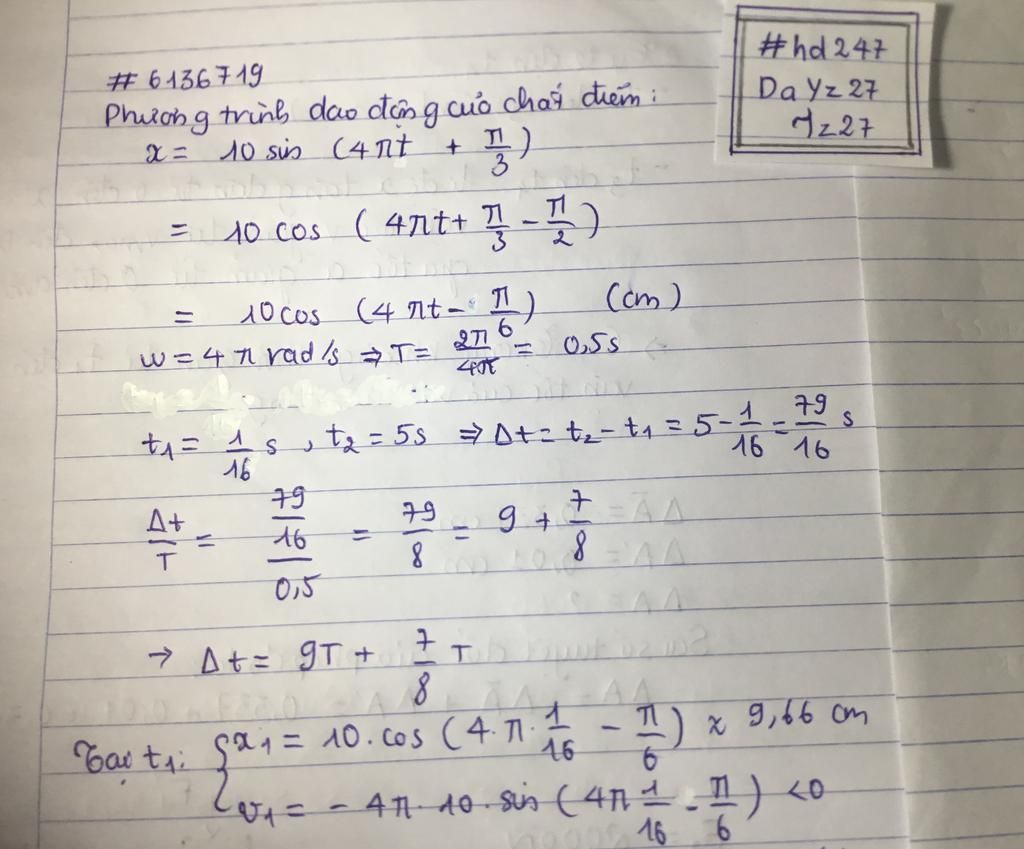 #hd247
Dayz27
1z27
# 6136719
Phương trình dao động của chất điểm:
x = 10 sin (4πt + π/3)
= 10 cos (4πt + π/3 - π/2)
= 10 cos (4πt - π/6) (cm)
ω = 4π rad/s ⇒ T = 2π/4π = 0,5s
t₁ = 1/16 s, t₂ = 5s ⇒ Δt = t₂ - t₁ = 5 - 1/16 = 79/16 s
Δt/T = (79/16)/0,5 = 79/8 = 9 + 7/8
→ Δt = 9T + 7/8 T
Tại t₁: { x₁ = 10.cos (4.π.1/16 - π/6) ≈ 9,66 cm
v₁ = - 4π.10.sin (4π 1/16 - π/6) <0